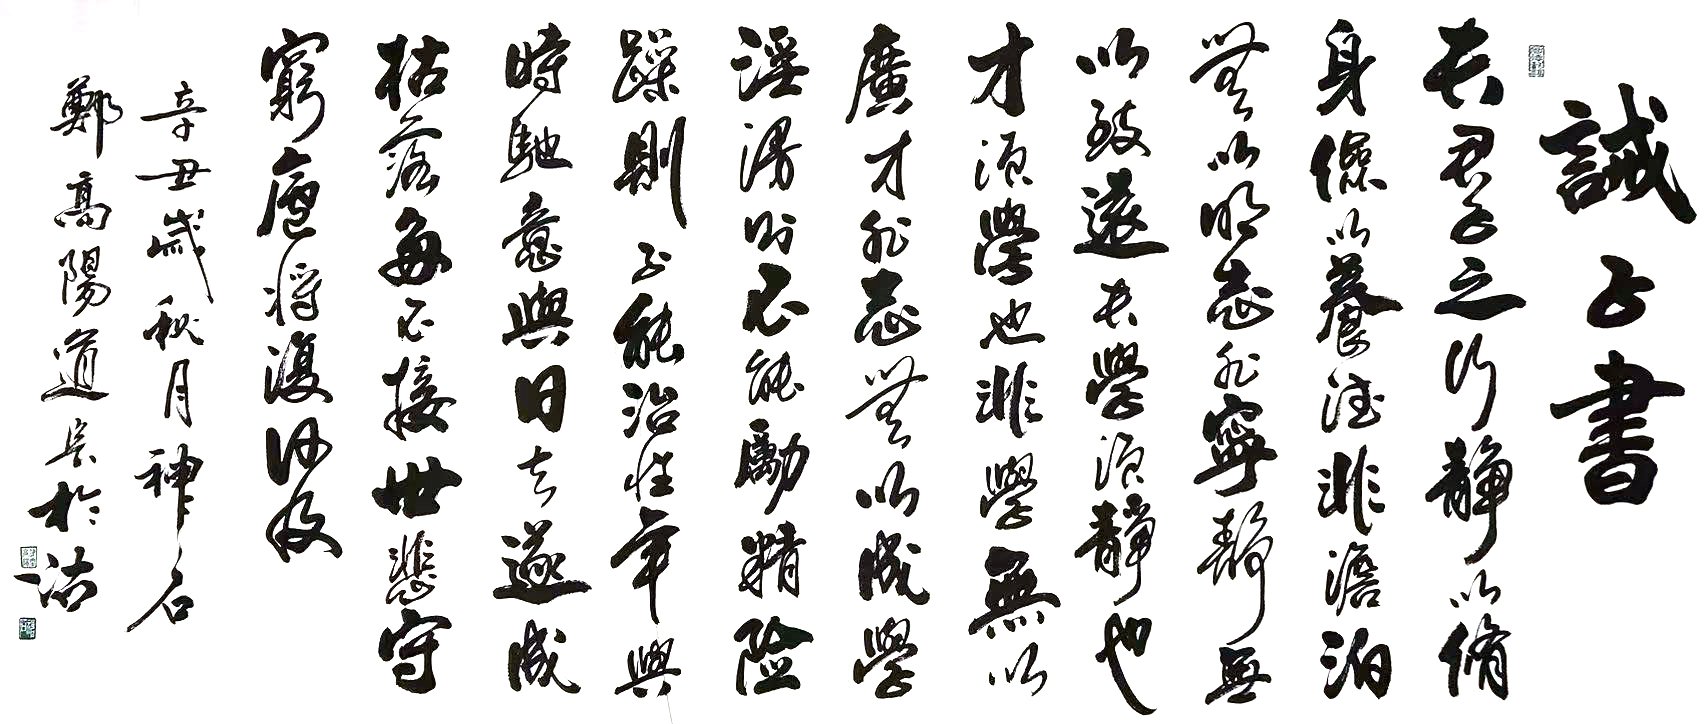 誡子書
夫君子之行静以脩
身儉以養德非澹泊
無以明志非寧靜無
以致遠夫學須靜也
才須學也非學無以
廣才非志無以成學
淫漫則不能勵精险
躁則不能治性年與
時馳意與日去遂成
枯落每不接世悲守
窮廬將復何及
辛丑歲秋月神石
鄭高陽道於沽